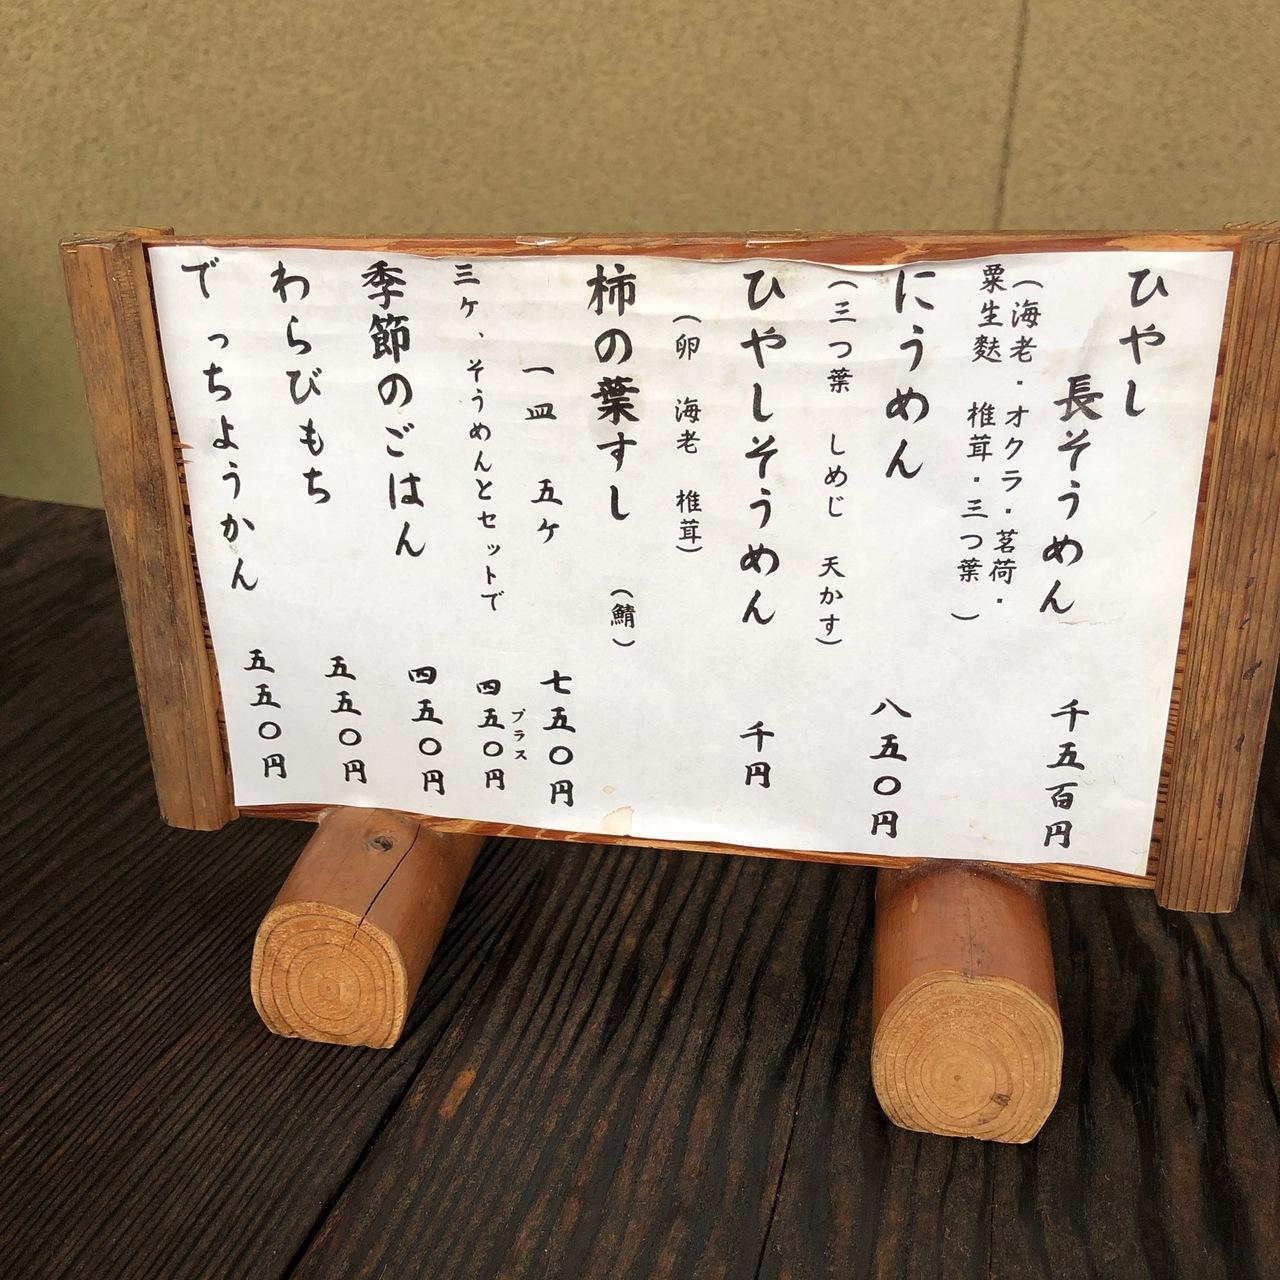 ひやし
長そうめん 千五百円
（海老・オクラ・茗荷・
粟生麩 椎茸・三つ葉）
にうめん 八五〇円
（三つ葉 しめじ 天かす）
ひやしそうめん 千円
（卵 海老 椎茸）
柿の葉すし （鯖）
一皿 五ケ 七五〇円
三ケ、そうめんとセットで プラス 四五〇円
季節のごはん 四五〇円
わらびもち 五五〇円
でっちようかん 五五〇円